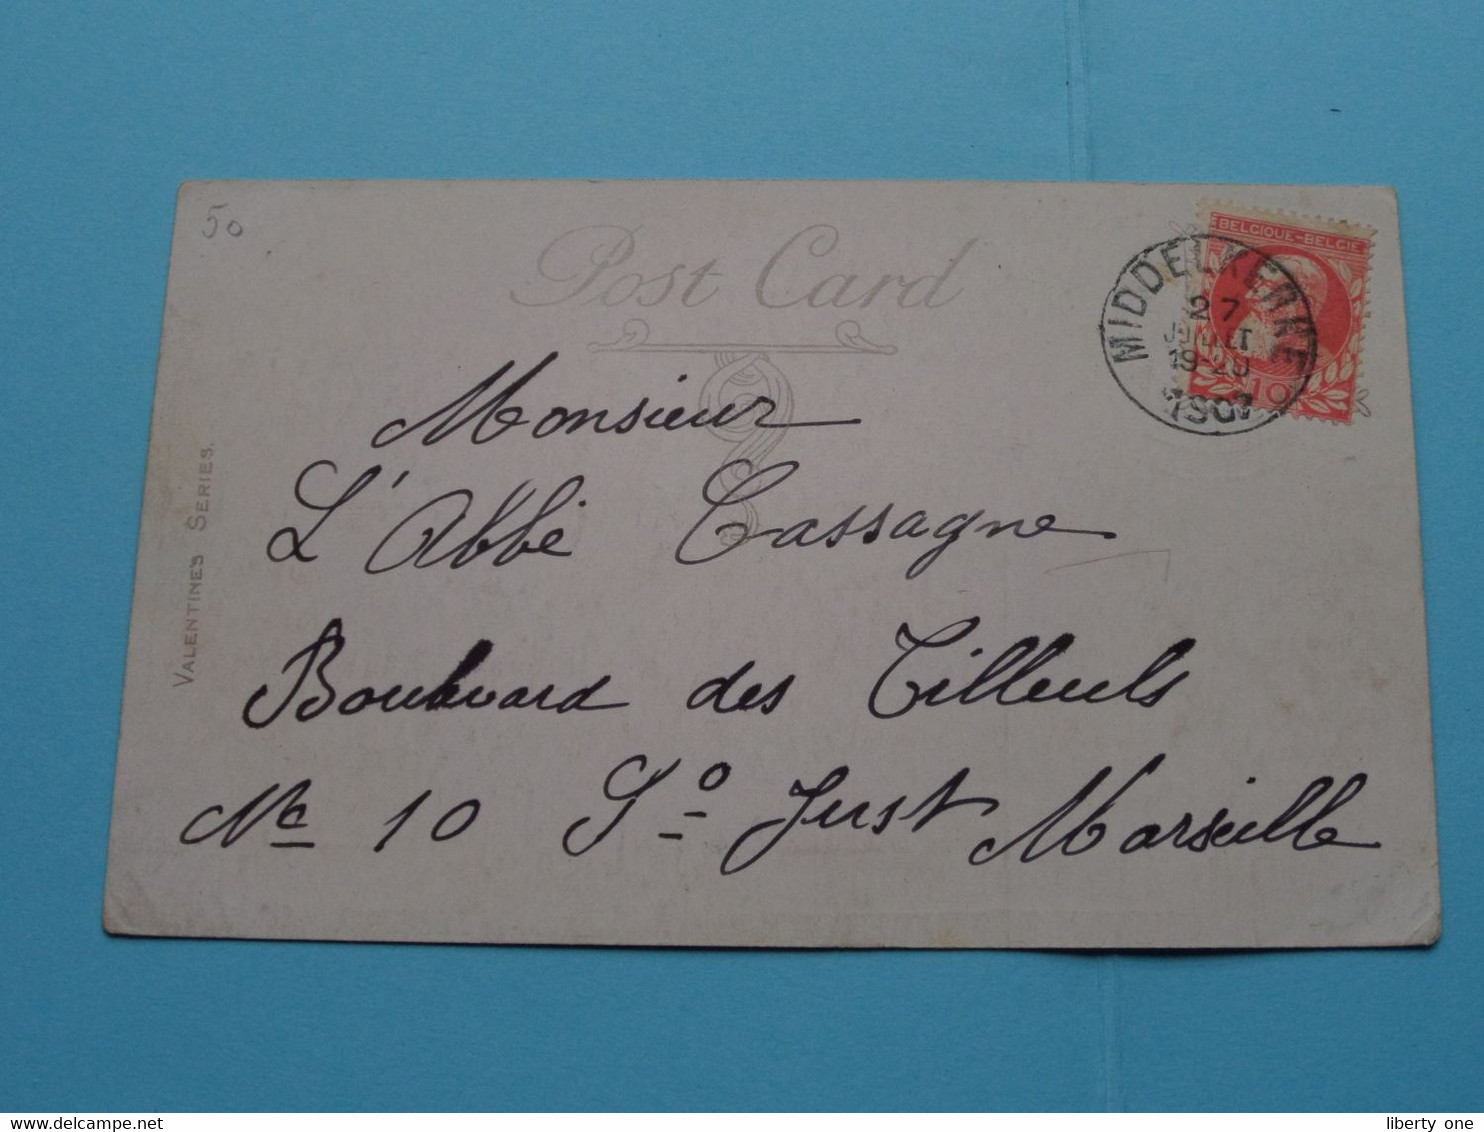 50
Post Card
BELGIQUE-BELGIE
MIDDELKERKE
27
JUILLET
19-20
1907
10
Monsieur
L'Abbé Cassagne
Boulevard des Tilleuls
No 10 St Just Marseille
VALENTINE'S SERIES.
liberty one